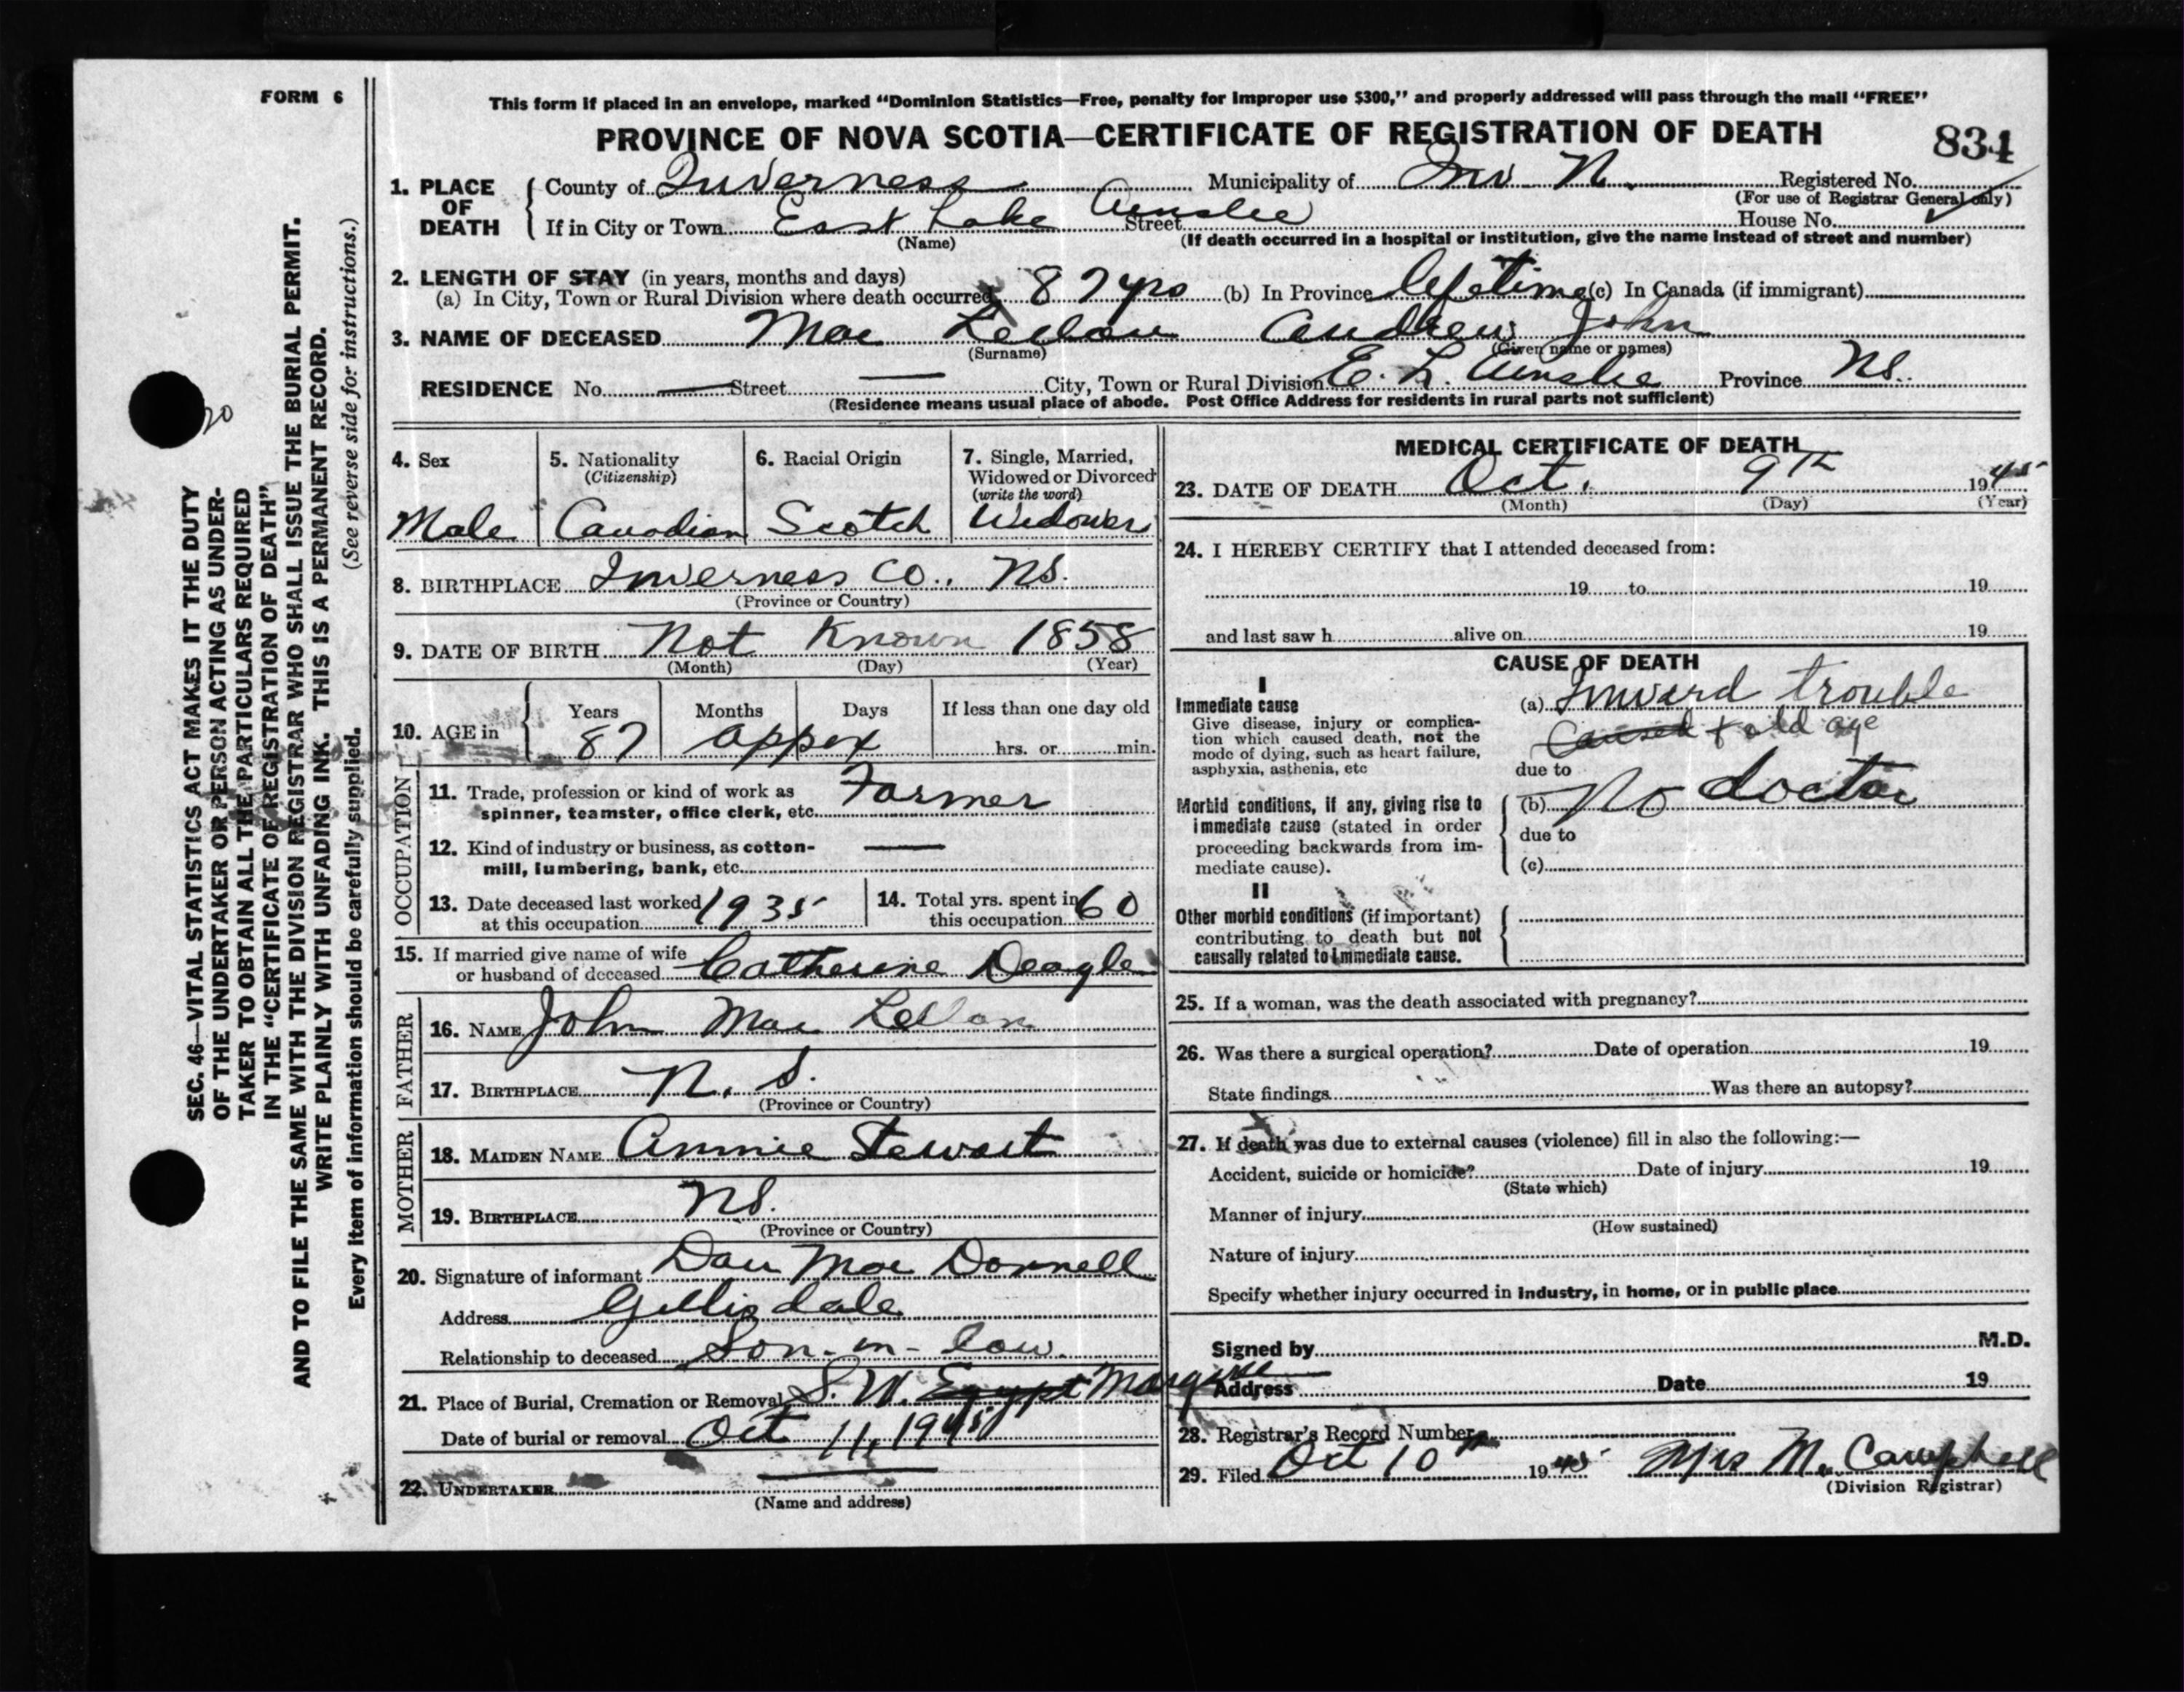 FORM 6
This form if placed in an envelope, marked “Dominion Statistics—Free, penalty for improper use $300,” and properly addressed will pass through the mail “FREE”
PROVINCE OF NOVA SCOTIA—CERTIFICATE OF REGISTRATION OF DEATH
834
1. PLACE OF DEATH { County of Inverness Municipality of Inv N. Registered No.
(For use of Registrar General only)
If in City or Town East Lake Ainslie Street House No.
(Name) (If death occurred in a hospital or institution, give the name instead of street and number)
2. LENGTH OF STAY (in years, months and days)
(a) In City, Town or Rural Division where death occurred 87 yrs (b) In Province lifetime (c) In Canada (if immigrant)
3. NAME OF DECEASED Mac Lellan Andrew John
(Surname) (Given name or names)
RESIDENCE No. — Street — City, Town or Rural Division E. L. Ainslie Province NS.
(Residence means usual place of abode. Post Office Address for residents in rural parts not sufficient)
4. Sex
Male
5. Nationality
(Citizenship)
Canadian
6. Racial Origin
Scotch
7. Single, Married,
Widowed or Divorced
(write the word)
Widower
8. BIRTHPLACE Inverness Co., NS.
(Province or Country)
9. DATE OF BIRTH Not Known 1858
(Month) (Day) (Year)
10. AGE in { Years Months Days If less than one day old
87 appox hrs. or min.
OCCUPATION
11. Trade, profession or kind of work as
spinner, teamster, office clerk, etc. Farmer
12. Kind of industry or business, as cotton-
mill, lumbering, bank, etc. —
13. Date deceased last worked
at this occupation 1935
14. Total yrs. spent in
this occupation 60
15. If married give name of wife
or husband of deceased Catherine Deagle
FATHER
16. NAME John Mac Lellan
17. BIRTHPLACE N. S.
(Province or Country)
MOTHER
18. MAIDEN NAME Annie Stewart
19. BIRTHPLACE NS.
(Province or Country)
20. Signature of informant Dan Mac Donnell
Address Gillisdale
Relationship to deceased Son-in-law.
21. Place of Burial, Cremation or Removal S. W. Egypt Margaree
Date of burial or removal Oct 11, 1945
22. UNDERTAKER —
(Name and address)
MEDICAL CERTIFICATE OF DEATH
23. DATE OF DEATH Oct. 9th 1945
(Month) (Day) (Year)
24. I HEREBY CERTIFY that I attended deceased from:
19 to 19
and last saw h alive on 19
CAUSE OF DEATH
I
Immediate cause
Give disease, injury or complica-
tion which caused death, not the
mode of dying, such as heart failure,
asphyxia, asthenia, etc
(a) Inward trouble
Caused + old age
due to
Morbid conditions, if any, giving rise to
immediate cause (stated in order
proceeding backwards from im-
mediate cause).
(b) No doctor
due to
(c)
II
Other morbid conditions (if important)
contributing to death but not
causally related to immediate cause.
25. If a woman, was the death associated with pregnancy?
26. Was there a surgical operation? Date of operation 19
State findings Was there an autopsy?
27. If death was due to external causes (violence) fill in also the following:—
Accident, suicide or homicide? Date of injury 19
(State which)
Manner of injury
(How sustained)
Nature of injury
Specify whether injury occurred in industry, in home, or in public place
Signed by M.D.
Address Date 19
28. Registrar's Record Number
29. Filed Oct 10th 1945 Mrs M. Campbell
(Division Registrar)
20
SEC. 46—VITAL STATISTICS ACT MAKES IT THE DUTY
OF THE UNDERTAKER OR PERSON ACTING AS UNDER-
TAKER TO OBTAIN ALL THE PARTICULARS REQUIRED
IN THE “CERTIFICATE OF REGISTRATION OF DEATH”
AND TO FILE THE SAME WITH THE DIVISION REGISTRAR WHO SHALL ISSUE THE BURIAL PERMIT.
WRITE PLAINLY WITH UNFADING INK. THIS IS A PERMANENT RECORD.
(See reverse side for instructions.)
Every item of information should be carefully supplied.